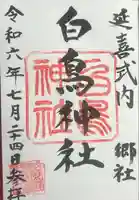 延喜式内 郷社
白鳥神社
令和六年七月二十四日参拝